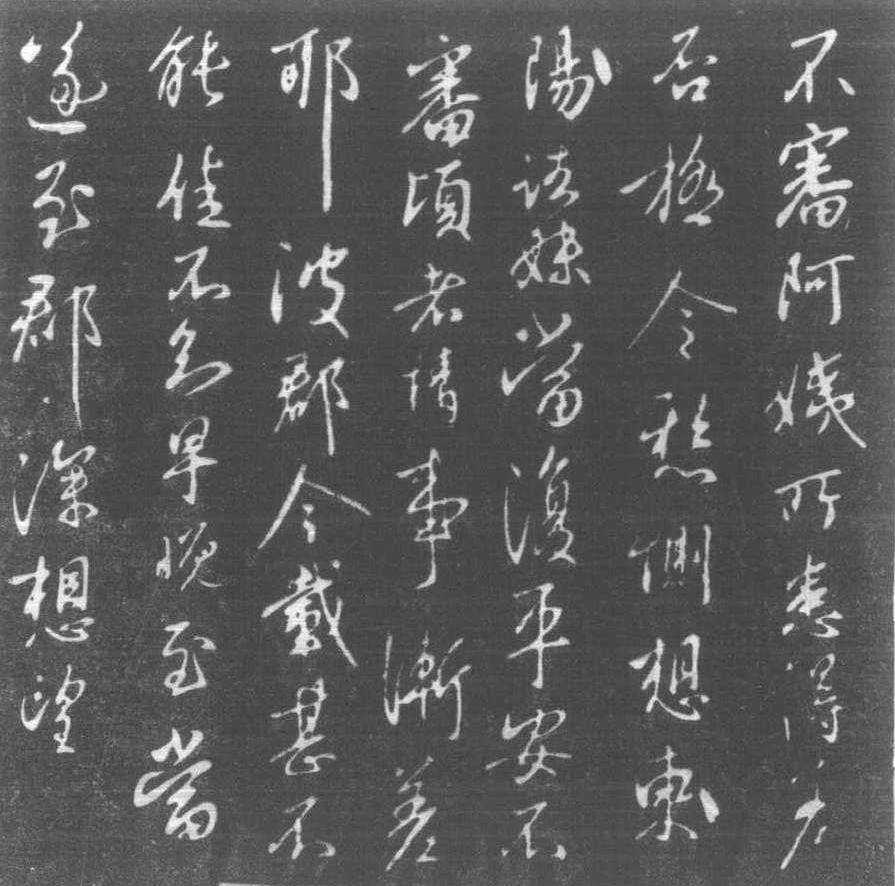 不審阿姨所患得差
否極令悬惻想東
陽諸妹當復平安不
審頃者情事漸差
耶彼郡今載甚不
能佳不知早晚至當
遂至郡深想望